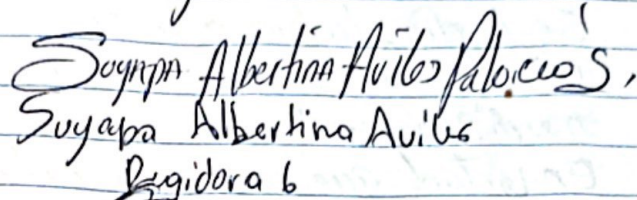 Suyapa Albertina Aviles Palacios,
Suyapa Albertina Aviles
Regidora 6